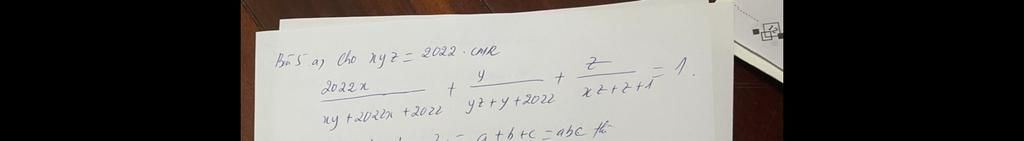 Bài 5 a, Cho xyz = 2022. CMR
2022x / (xy + 2022x + 2022) + y / (yz + y + 2022) + z / (xz + z + 1) = 1.
a + b + c = abc thì